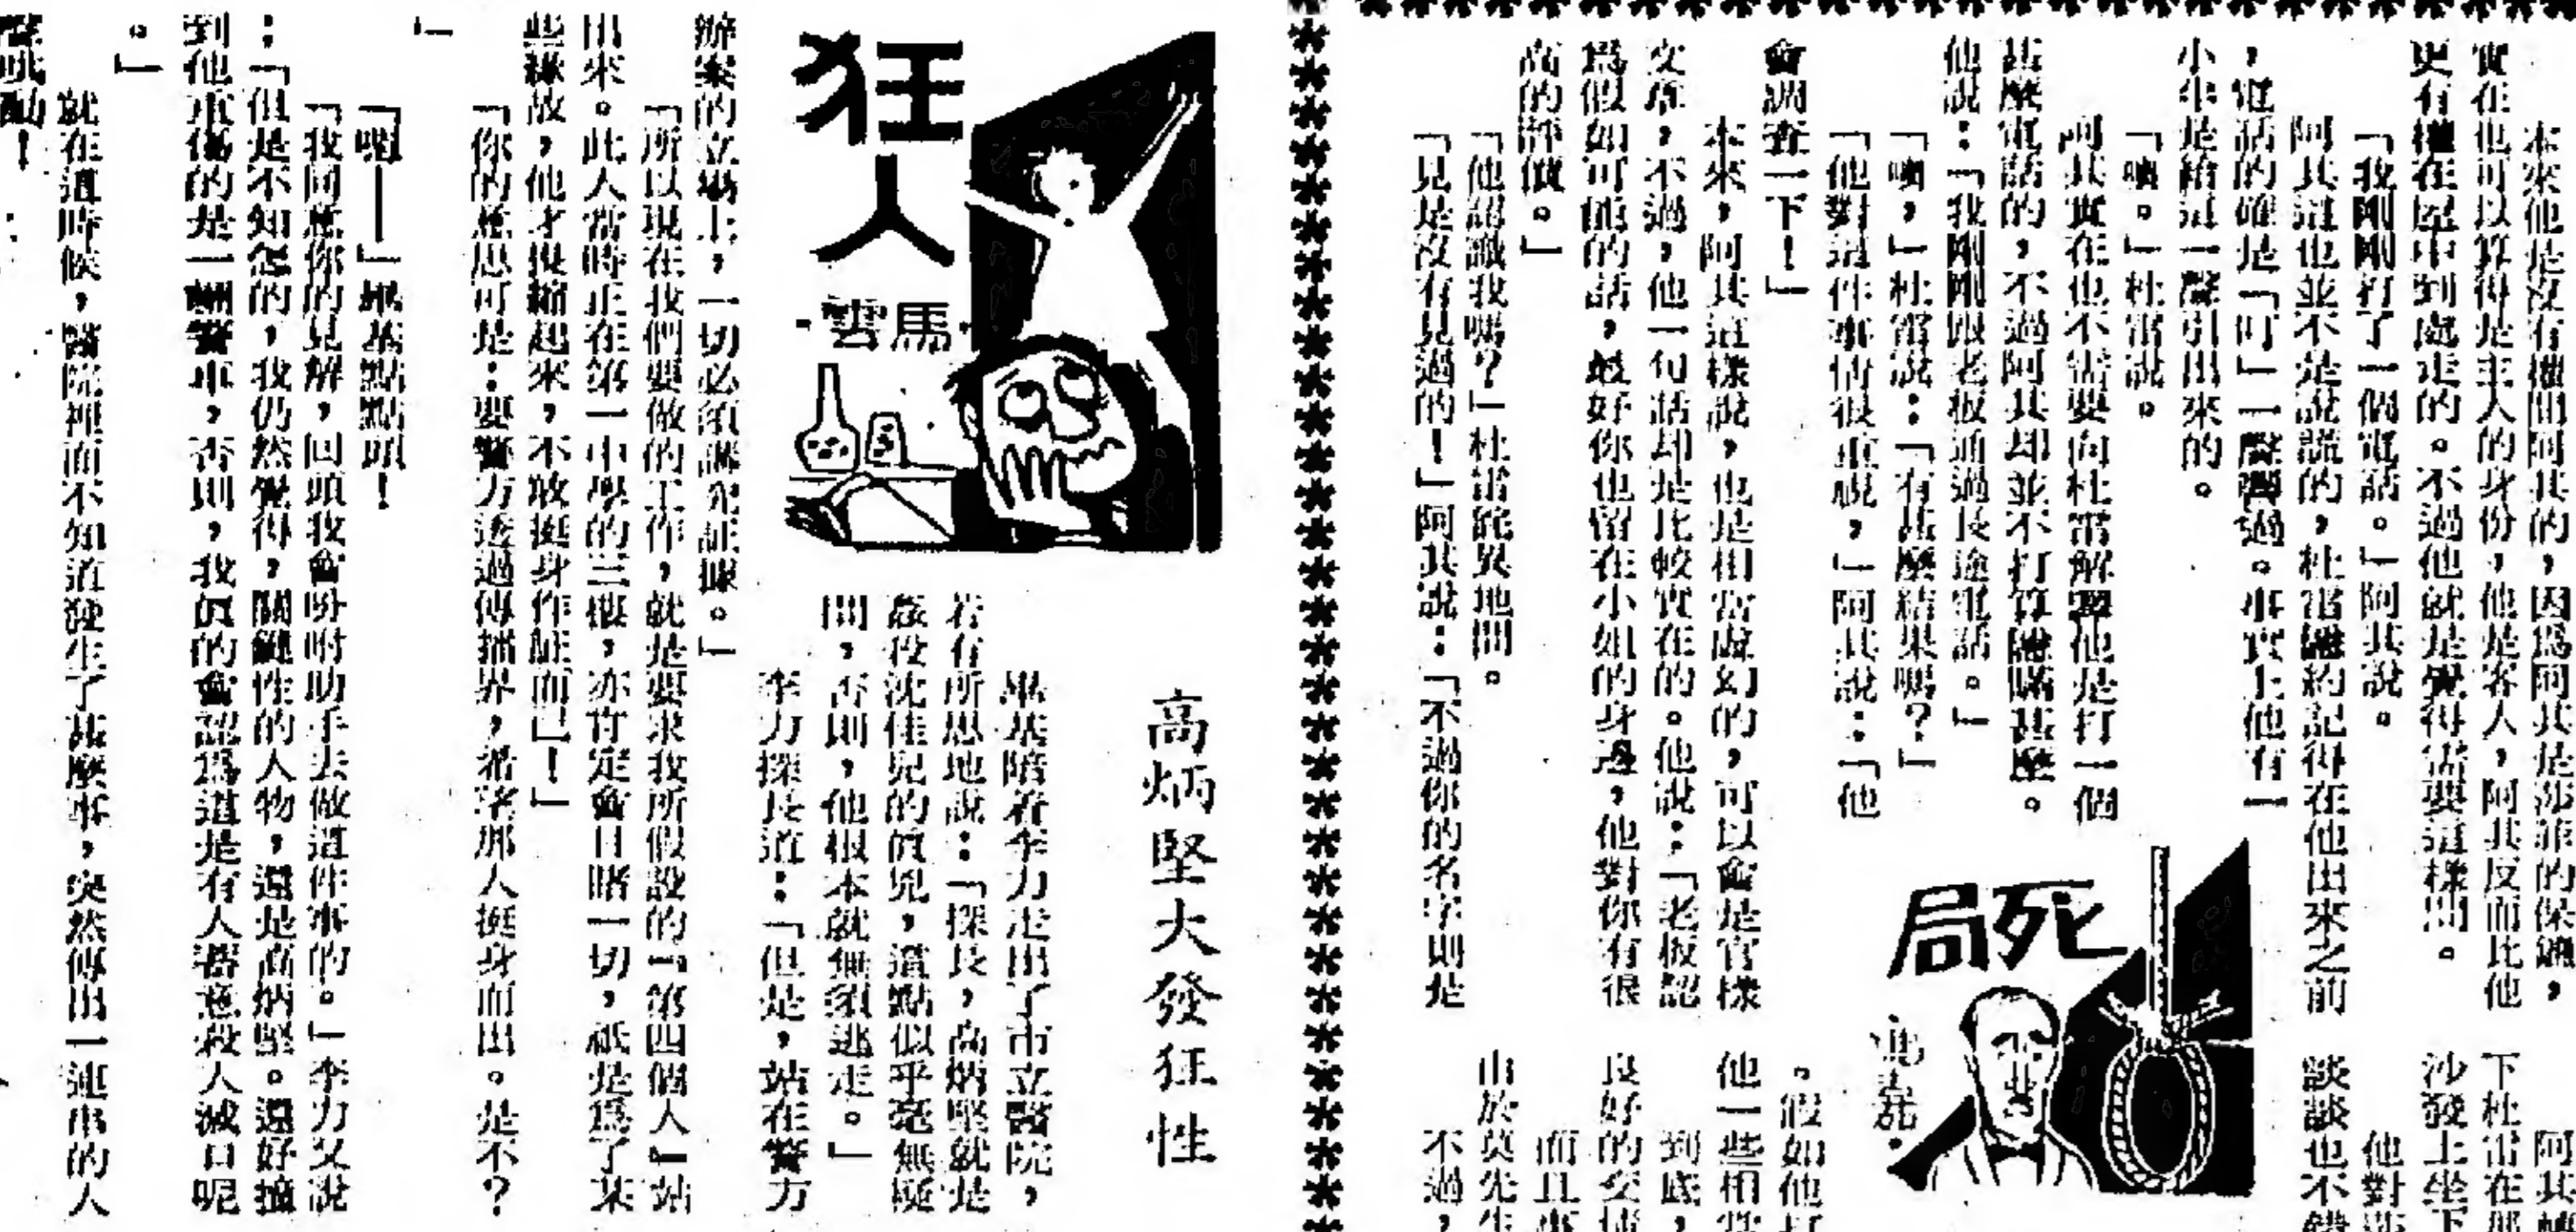 本來他是沒有權問阿其的，因為阿其是莎菲的保鏢，
實在也可以算得是主人的身份，他是客人，阿其反而比他
更有權在屋中到處走的。不過他就是覺得需要這樣問。
「我剛剛打了一個電話。」阿其說。
阿其這也並不是說謊的，杜雷隱約記得在他出來之前
，電話的確是「叮」一聲響過。事實上他有一
小半是給這一聲引出來的。
「噢。」杜雷說。
阿其實在也不需要向杜雷解釋他是打一個
甚麼電話的，不過阿其却並不打算隱瞞甚麼。
他說：「我剛剛跟老板通過長途電話。」
「噢，」杜雷說：「有甚麼結果嗎？」
「他對這件事情很重視，」阿其說：「他
會調查一下！」
本來，阿其這樣說，也是相當虛幻的，可以會是官樣
文章，不過，他一句話却是比較實在的。他說：「老板認
為假如可能的話，最好你也留在小姐的身邊，他對你有很
高的評價。」
「他認識我嗎？」杜雷詫異地問。
「見是沒有見過的！」阿其說：「不過你的名字則是
死局
馮嘉·
阿其
下杜雷在那
沙發上坐下
他對
談談也不錯
。假如他打
他一些相當
到底，
良好的交
而且
由於莫先生
不過，
狂人
·馬雲·
高炳堅大發狂性
畢基陪着李力走出了市立醫院，
若有所思地說：「探長，高炳堅就是
姦殺沈佳兒的真兇，這點似乎毫無疑
問，否則，他根本就無須逃走。」
李力探長道：「但是，站在警方
辦案的立場上，一切必須講究証據。」
「所以現在我們要做的工作，就是要求我所假設的『第四個人』站
出來。此人當時正在第一中學的三樓，亦肯定會目睹一切，祇是為了某
些緣故，他才畏縮起來，不敢挺身作証而已！」
「你的意思可是：要警方透過傳播界，希望那人挺身而出。是不？
」
「嗯——」畢基點點頭！
「我同意你的見解，回頭我會吩咐助手去做這件事的。」李力又說
：「但是不知怎的，我仍然覺得，關鍵性的人物，還是高炳堅。還好撞
到他重傷的是一輛警車，否則，我真的會認為這是有人蓄意殺人滅口呢
。」
就在這時候，醫院裡面不知道發生了甚麼事，突然傳出一連串的人
聲哄動！